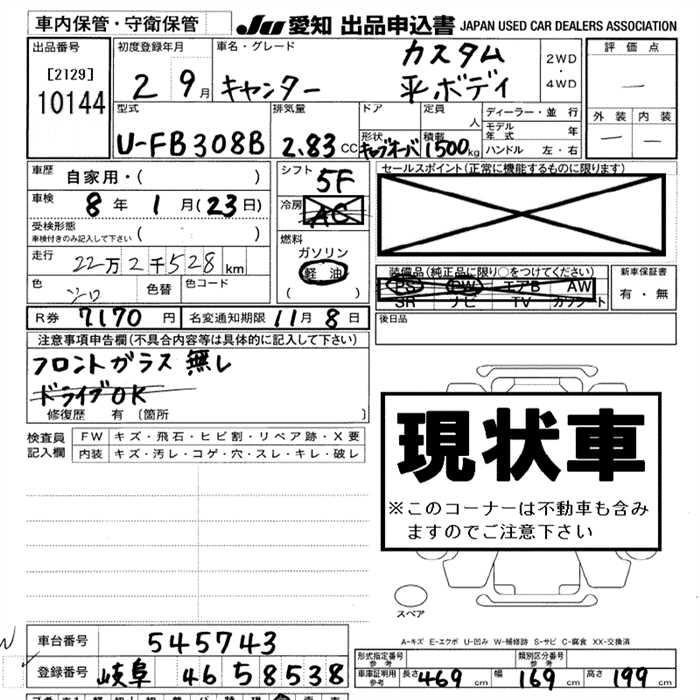 車内保管・守衛保管
JU 愛知 出品申込書 JAPAN USED CAR DEALERS ASSOCIATION
出品番号
[2129]
10144
初度登録年月
2 9月
車名・グレード
キャンター
カスタム
平ボディ
2WD
・
4WD
評価点
—
外装 内装
— —
型式
U-FB308B
排気量
2.83 CC
ドア
形状
キャブオーバ
定員
人
積載
1500kg
ディーラー・並行
モデル年式 年
ハンドル 左・右
車歴 自家用・( )
車検 8年 1月(23日)
受検形態
車検付きのみ記入して下さい ( )
走行 22万2千528km
色 シロ 色替 色コード
シフト 5F
冷房 AC
燃料
ガソリン
軽油
( )
セールスポイント(正常に機能するものに限ります)
装備品(純正品に限り○をつけてください)
PS PW エアB AW
SR ナビ TV カワシート
新車保証書
有・無
後日品
R券 7170円 名変通知期限 11月8日
注意事項申告欄(不具合内容等は具体的に記入して下さい)
フロントガラス 無し
ドライブOK
修復歴 有 〔箇所 〕
検査員記入欄
FW キズ・飛石・ヒビ割・リペア跡・X要
内装 キズ・汚レ・コゲ・穴・スレ・キレ・破レ
現状車
※このコーナーは不動車も含み
ますのでご注意下さい
スペア
A-キズ E-エクボ U-凹み W-補修跡 S-サビ C-腐食 XX-交換済
車台番号 545743
登録番号 岐阜 46 58538
形式指定番号 参考
類別区分番号 参考
車庫証明用 参考 長さ 469cm 幅 169cm 高さ 199cm